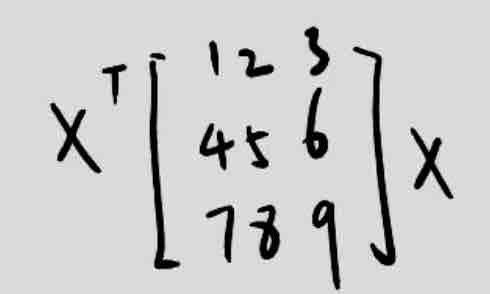 X^T [ 1 2 3
4 5 6
7 8 9 ] X